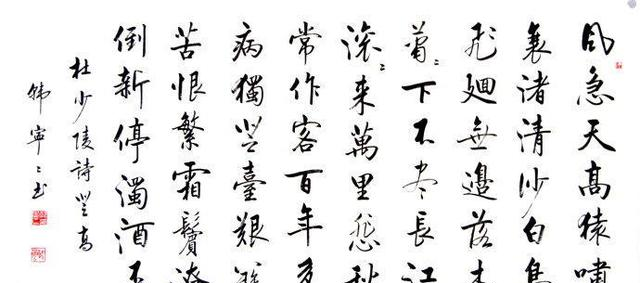 风急天高猿嘯
哀渚清沙白鳥
飛廻無邊落木
蕭〻下不尽長江
滚〻来萬里悲秋
常作客百年多
病獨登臺艱難
苦恨繁霜鬢潦
倒新停濁酒
杜少陵詩登高
韩寧〻书